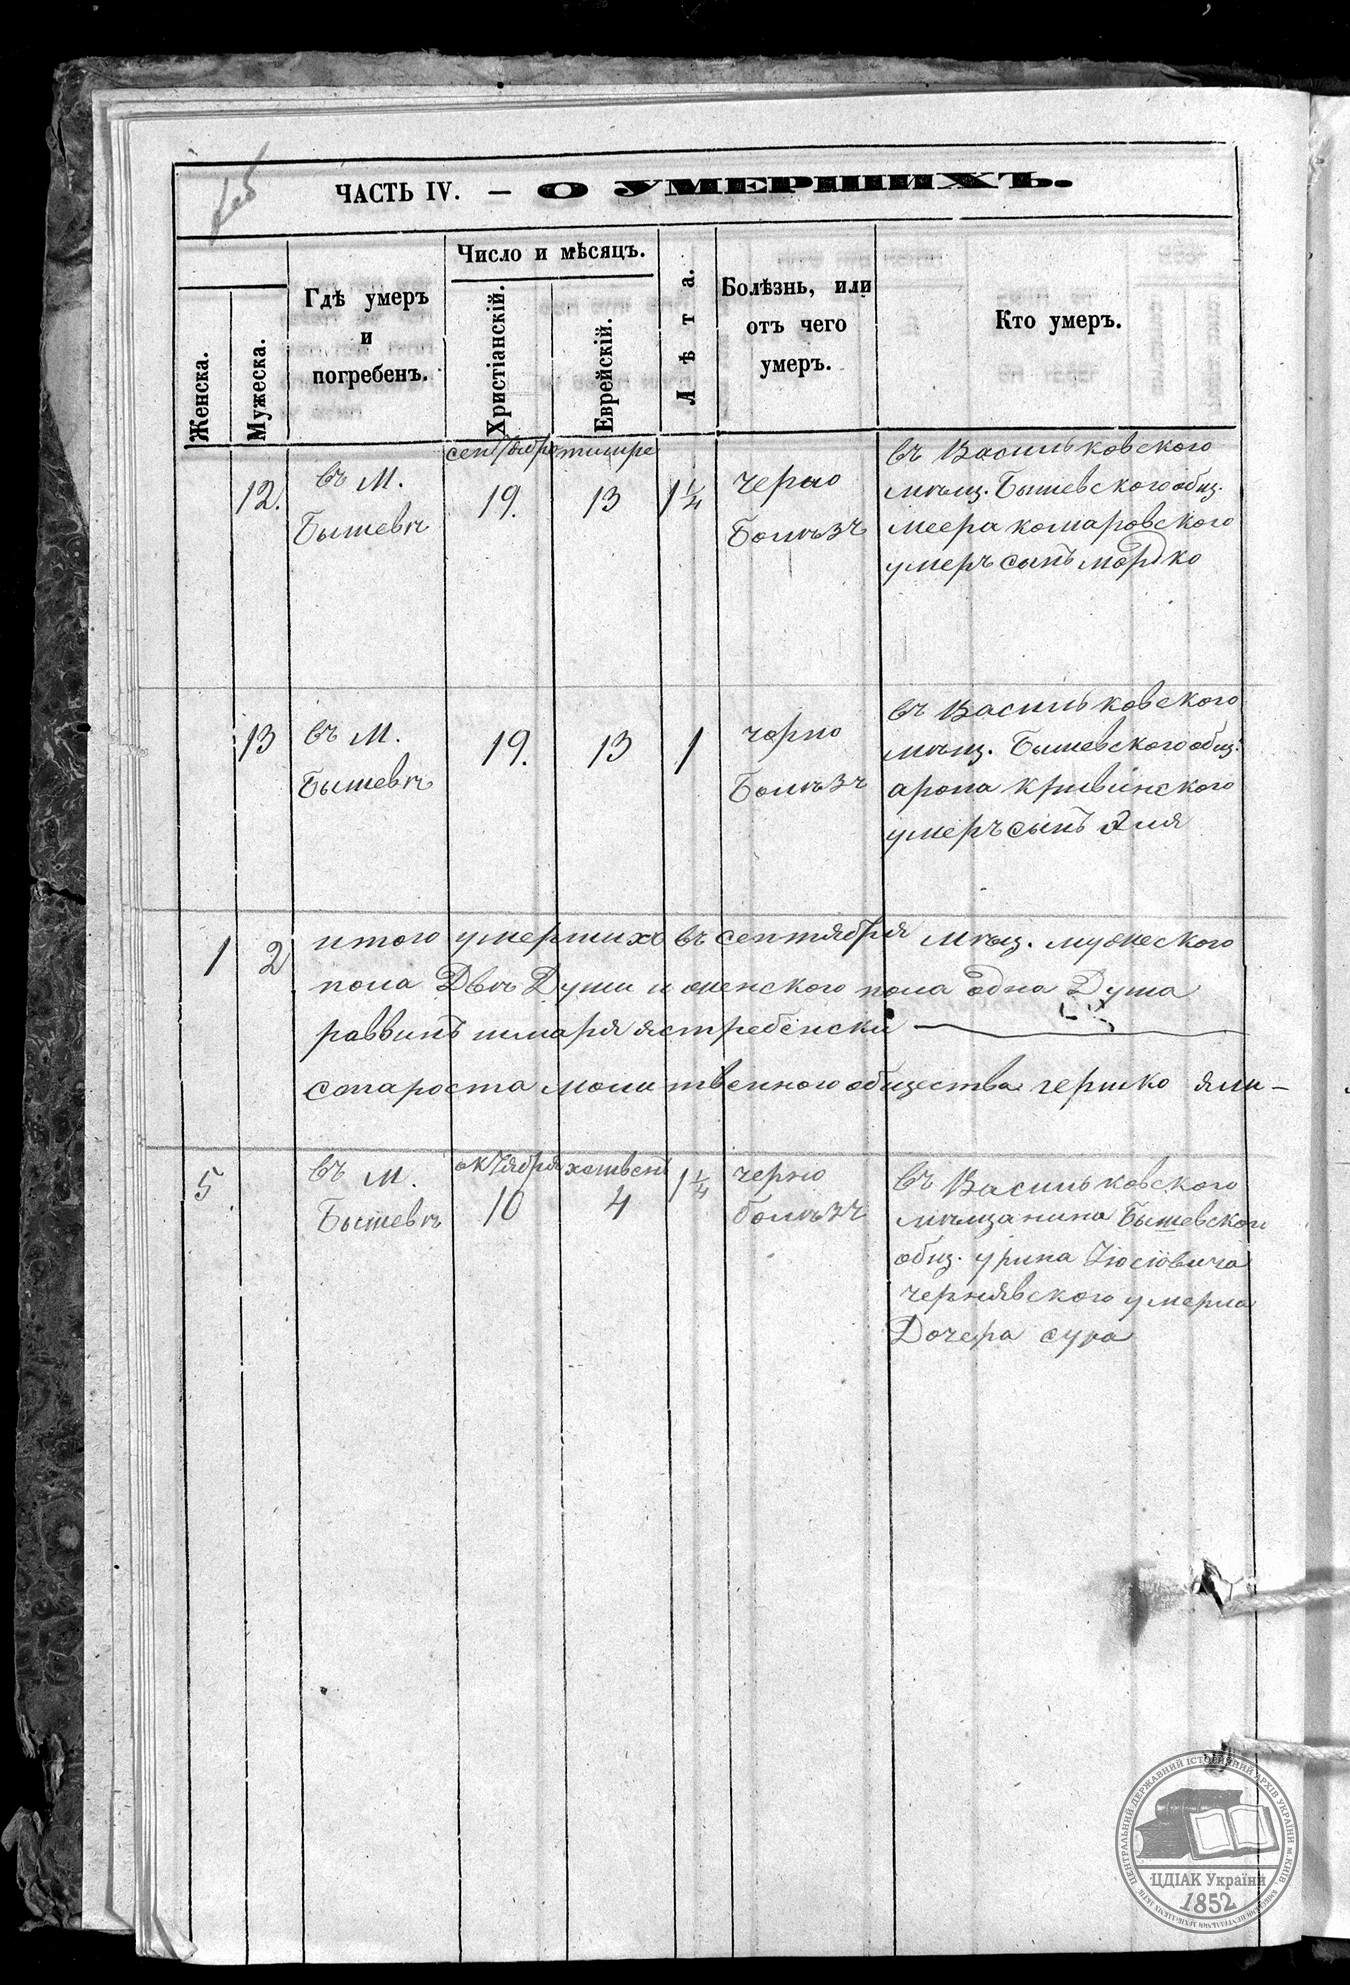 ЧАСТЬ IV. — О УМЕРШИХЪ.
Женска.
Мужеска.
Гдѣ умеръ
и
погребенъ.
Число и мѣсяцъ.
Христіанскій.
Еврейскій.
Лѣта.
Болѣзнь, или
отъ чего
умеръ.
Кто умеръ.
сентября тишре
12.
въ М.
Бышевѣ
19.
13
1 1/4
черно
Болѣзъ
въ Васильковского
мѣщ. Бышевского общ.
меера комаровского
умеръ сынъ мордко
13
въ М.
Бышевѣ
19.
13
1
чорно
Болѣзъ
въ Васильковского
мѣщ. Бышевского общ.
арона кривинского
умеръ сынъ Эля
1 2
итого умершихъ въ сентября мѣщ. мужеского
пола Двѣ Души и женского пола одна Душа
раввинъ шмаря ястребенски
староста молитвенного общества гершко яли-
октября хешвен
5
въ М.
Бышевѣ
10
4
1 1/4
черно
болѣзъ
въ Васильковского
мѣщанина Бышевского
общ. урина Іосіовича
чернявского умерла
Дочера сура
ЦЕНТРАЛЬНИЙ ДЕРЖАВНИЙ ІСТОРИЧНИЙ АРХІВ УКРАЇНИ М. КИЇВ
ЦДІАК України
1852